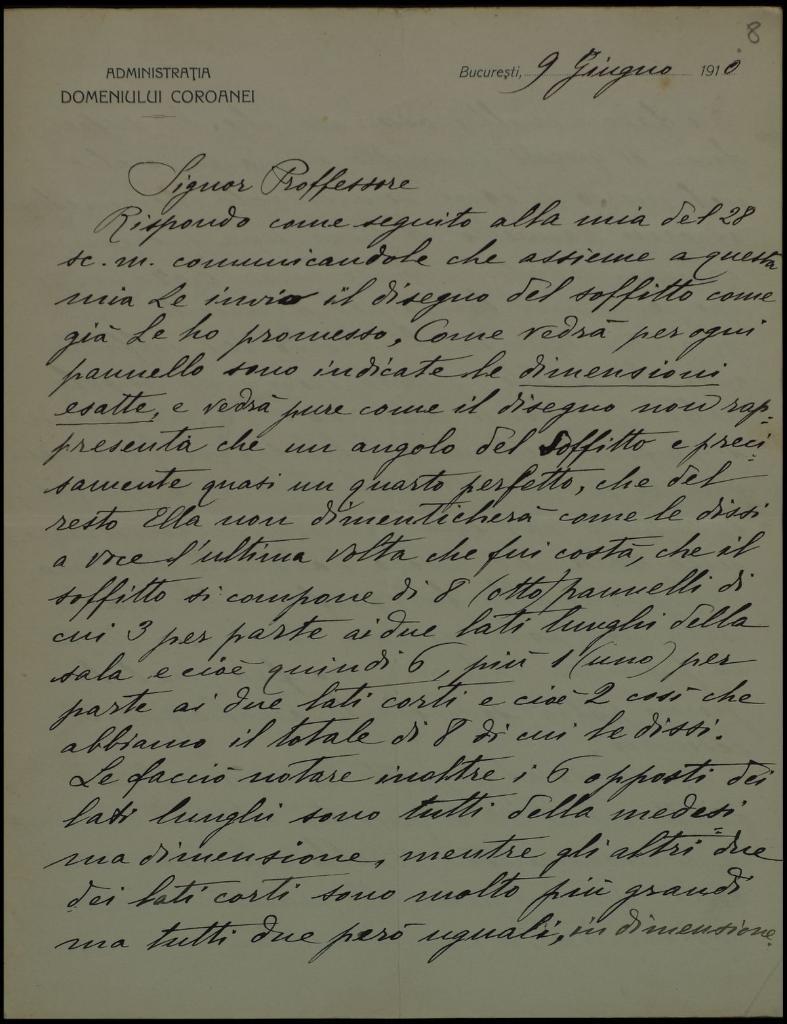 8
ADMINISTRAŢIA
DOMENIULUI COROANEI
Bucureşti, 9 Giugno 1910
Signor Proffessore
Rispondo come seguito alla mia del 28
sc. m. comunicandole che assieme a questa
mia Le invio il disegno del soffitto come
già Le ho promesso, Come vedrà per ogni
pannello sono indicate le dimensioni
esatte, e vedrà pure come il disegno non rap=
presenta che un angolo del soffitto e preci=
samente quasi un quarto perfetto, che del
resto Ella non dimenticherà come le dissi
a voce l'ultima volta che fui costà, che il
soffitto si compone di 8 (otto) pannelli di
cui 3 per parte ai due lati lunghi della
sala e cioè quindi 6, più 1 (uno) per
parte ai due lati corti e cioè 2 così che
abbiamo il totale di 8 di cui le dissi.
Le faccio notare inoltre i 6 opposti dei
lati lunghi sono tutti della medesi=
ma dimensione, mentre gli altri due
dei lati corti sono molto più grandi
ma tutti due però uguali, in dimensione.